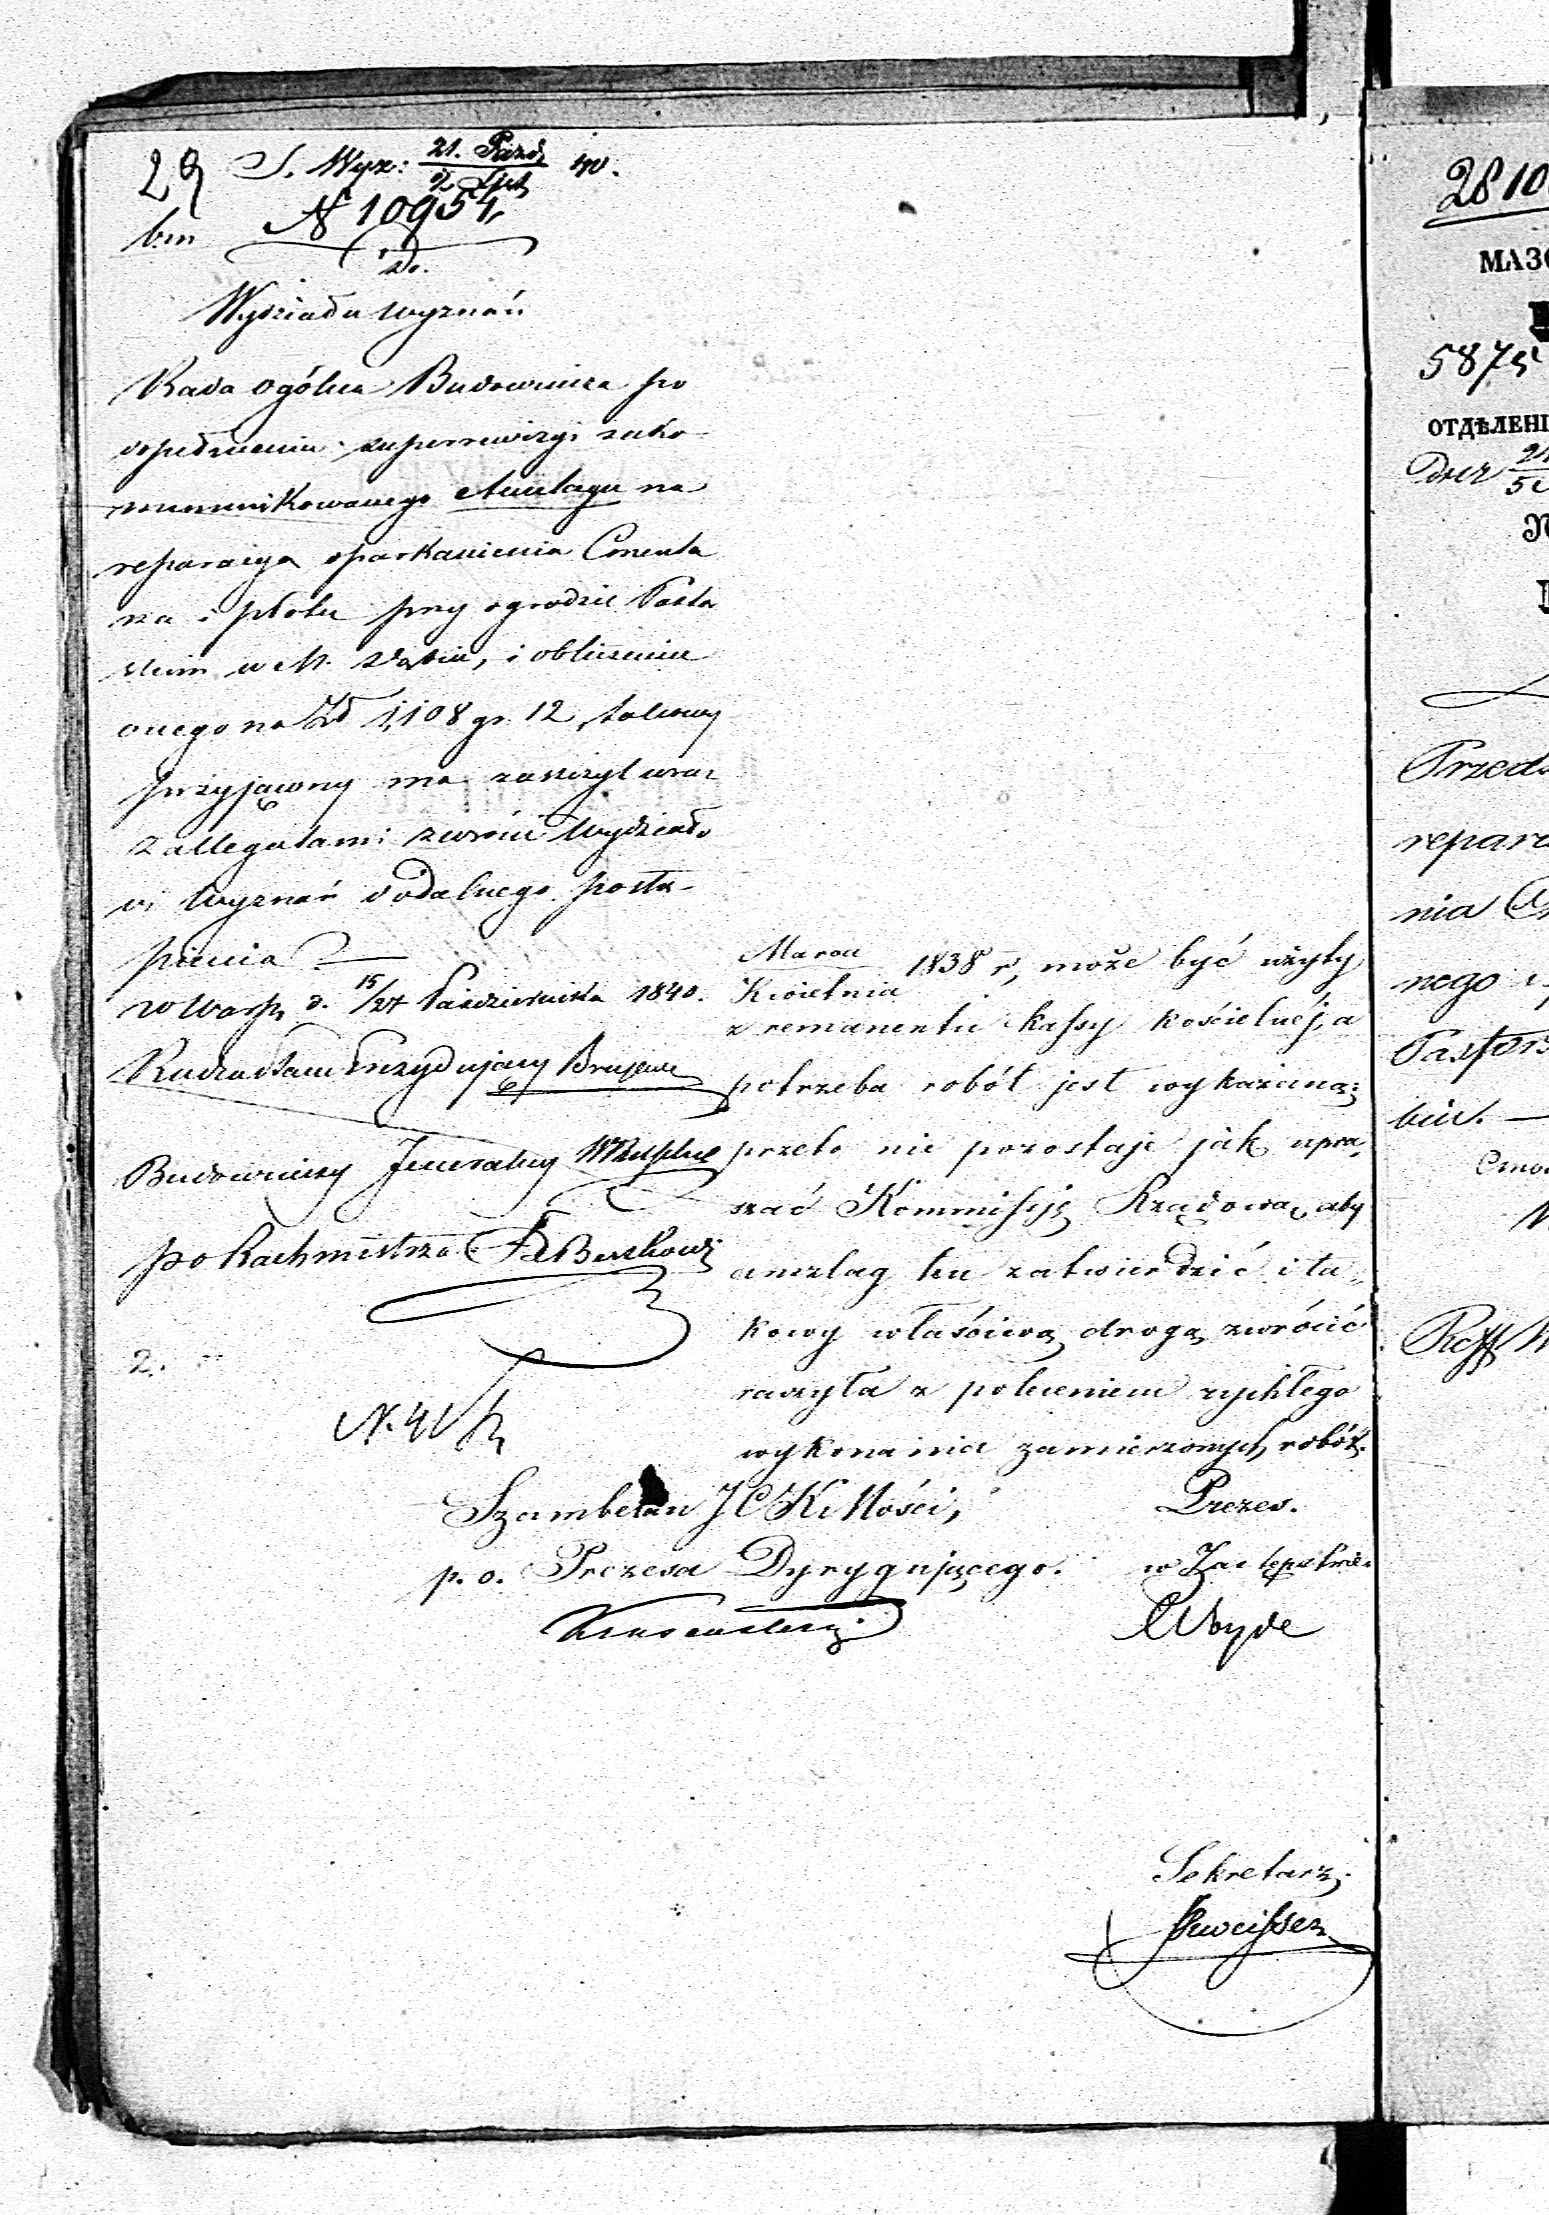 29 S. Wyz: 21. Paźd 40.
2 Lpd
bm N 10954
do.
Wydziału Wyznań
Rada ogólna Budownicza po
dopełnieniu superrewizyi zako-
mmunikowanego Anszlagu na
reparacyą oparkanienia Cmenta
rza i płotu przy ogrodzie Pasto
rskim w M. Dąbiu, i obliczeniu
onego na Zł 1,108 gr. 12, takowy
przyjąwszy ma zaszczyt wraz
z allegatami zwrócić Wydziało
wi Wyznań do dalszego postą-
pienia
w Warsz. d. 15/27 Października 1840.
Radca Stanu Prezydujący
Budowniczy Jeneralny
po Rachmistrza
2.
N. 41
Marca
Kwietnia 1838 r, może być użyty
z remanentu kassy kościelnéj, a
potrzeba robót jest wykazana;
przeto nie pozostaje jak upra„
szać Kommissyę Rządową, aby
anszlag ten zatwierdzić i ta„
kowy właściwą drogą zwrócić
raczyła z poleceniem rychłego
wykonania zamierzonych robót.
Szambelan JCKMości, Prezes.
p. o. Prezesa Dyrygującego. w Zastępstwie
Sekretarz,
2810
МАЗО
5875
ОТДѢЛЕНІ
Przed
repara
nia
nego i
Pastors
biu. —